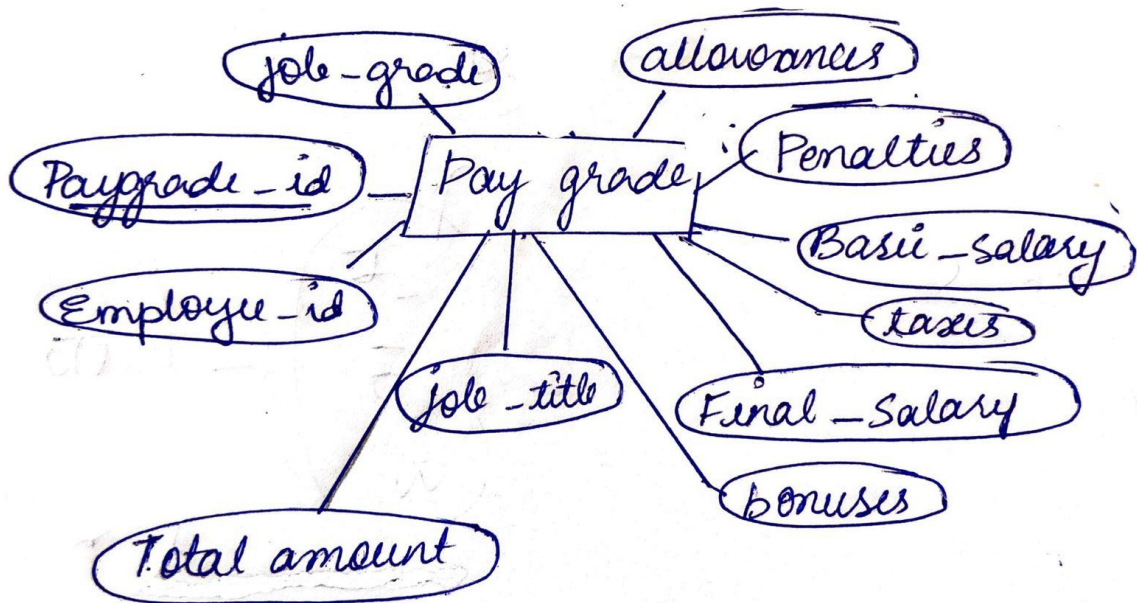 job_grade
allowances
Paygrade_id
Pay grade
Penalties
Basic_salary
Employee_id
taxes
job_title
Final_Salary
bonuses
Total amount